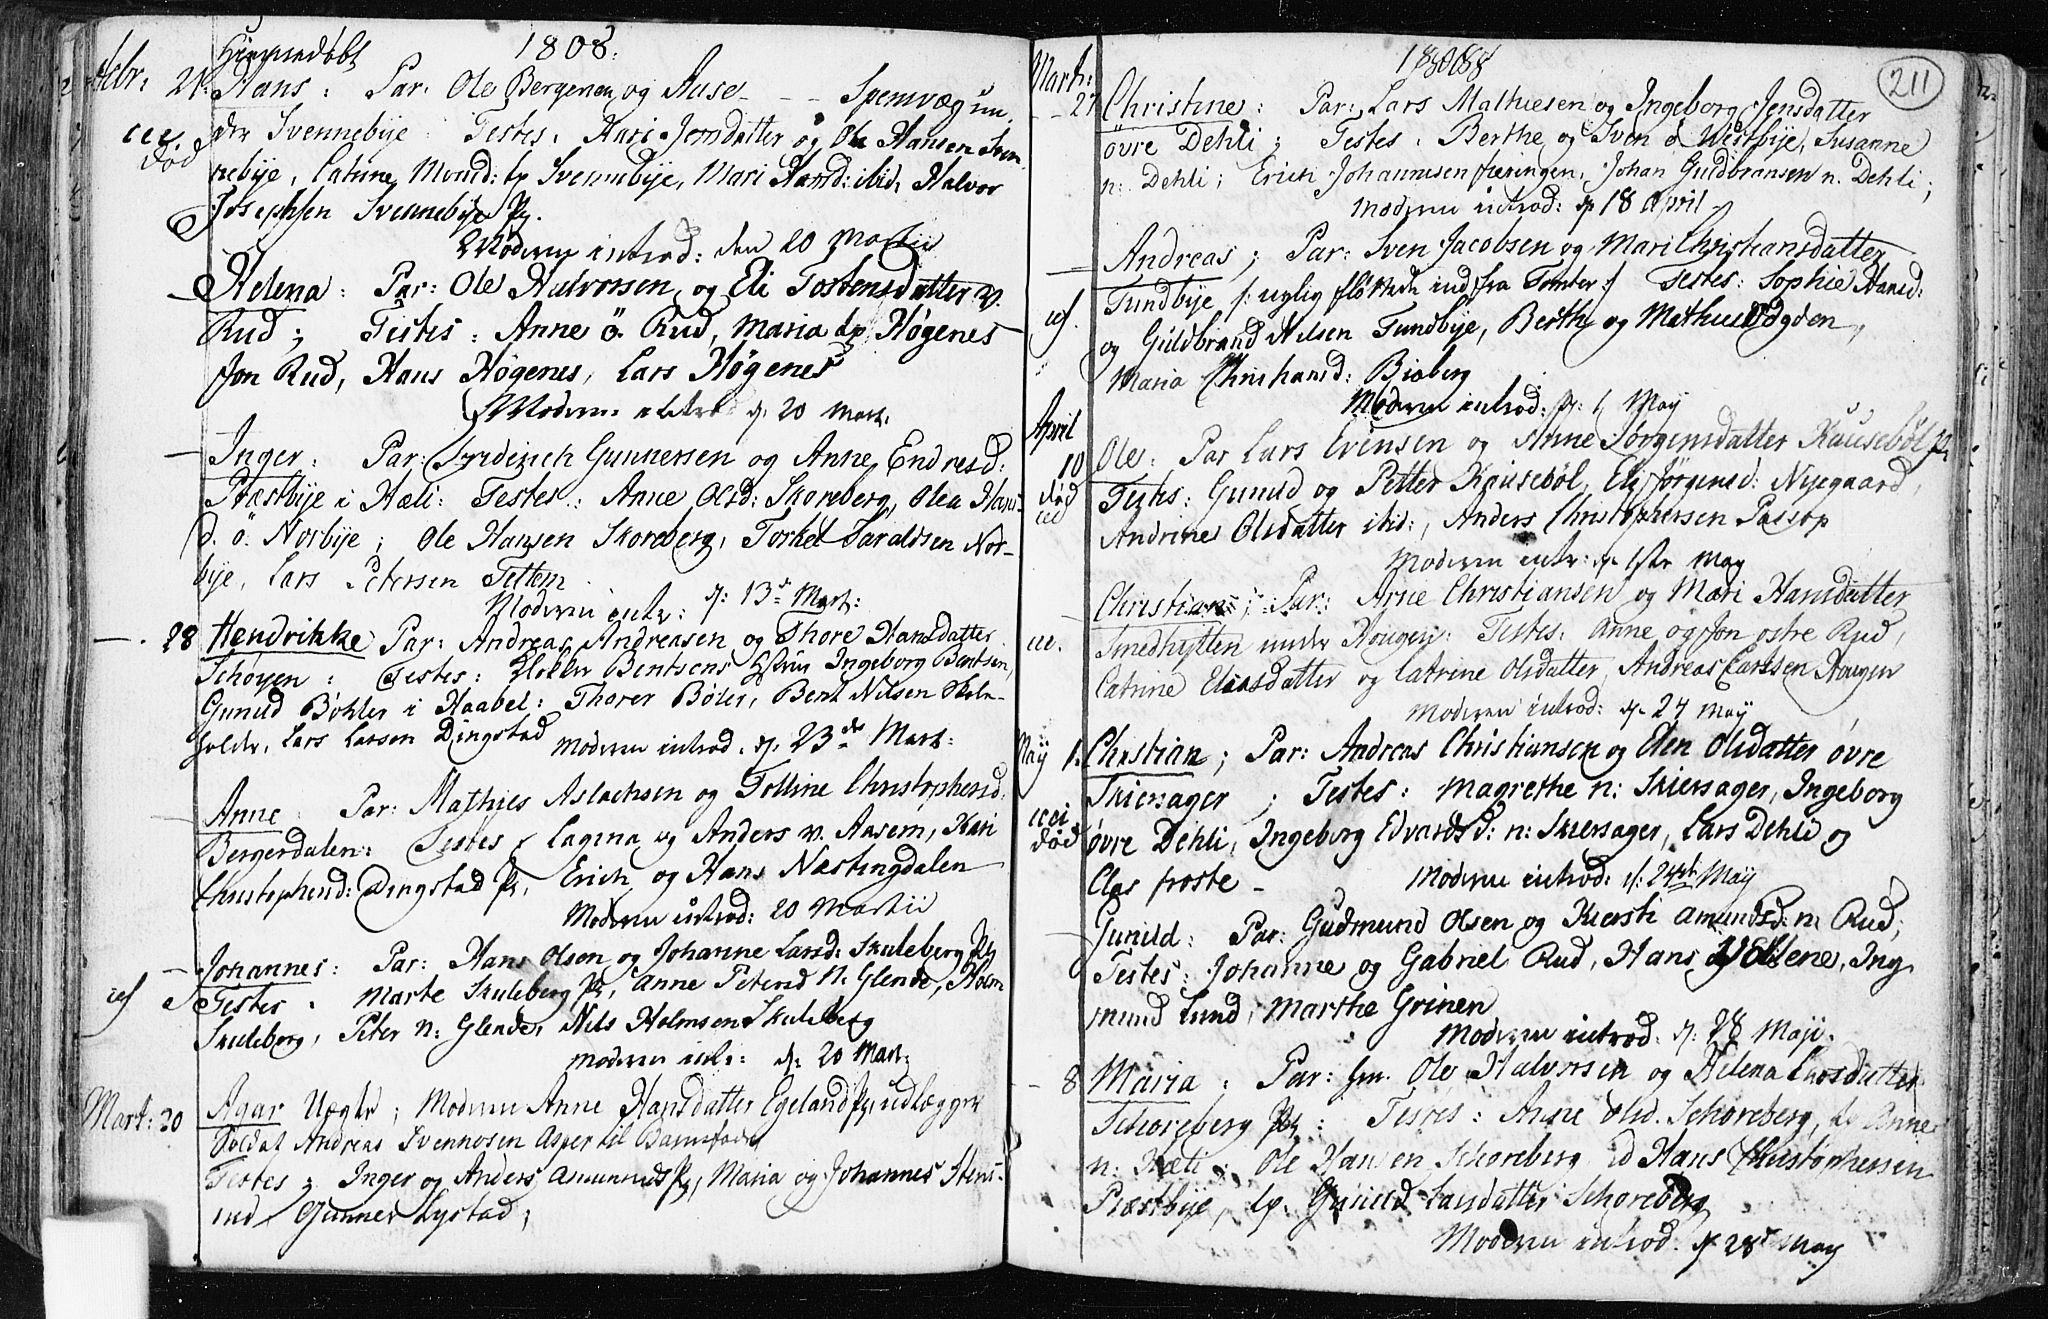 1808.
Hiemmedøbt
Febr: 21. Hans: Par: Ole Bergersen og Aase - - - Spernvæg un-
der Svennebÿe Testes: Kari Jonsdatter og Ole Hansen Sven
død
nebÿe, Catrine Svennebÿe, Mari Hansd: ibid, Halvor
Josephsen Svennebÿe
Moderen introd: den 20 Martii
— Helena: Par: Ole Halvorsen og Eli Tostensdatter v.
Rud; Testes: Anne ö. Rud, Maria Høgenes
Jon Rud, Hans Høgenes, Lars Høgenes
Moderen introd: d. 20 Mart.
— Inger: Par: Friderich Gunnersen og Anne Endresd:
Præstbÿe i Kæti: Testes: Anne Olsd: Skoreberg, Olea Hans
d. ö. Norbÿe; Ole Hansen Skoreberg, Torkel Taraldsen Nor-
bÿe, Lars Petersen Tettem
Moderen intr: d: 13de Mart:
—. 28 Hendrikke Par: Andreas Andreasen og Thore Hansdatter
Schöyen: Testes: Klokker Bentsens Ingeborg Bentsen,
Gunild Böhler i Haabel: Thorer Böler, Bent Nilsen
Lars Larsen Dingstad Moderen introd. d. 23de Mart:
Anne Par: Mathies Aslachsen og Tolline Christophersd:
Bergerdalen: Testes: Lagina og Anders v. Aasem, Kari
Christophersd: Dingstad Erich og Hans Næstingdalen
Moderen introd: 20 Martii
— Johannes: Par: Hans Olsen og Johanne Larsd: Skuleberg
Testes: Marte Skuleberg Anne Petersd N: Glende, Holm
Skuleberg, Peter n: Glende, Nils Holmsen Skuleberg
Moderen intr: d. 20 Mart:
Mart: 20 Agar Uægte; Moderen Anne Hansdatter Egeland udlægger
Soldat Andreas Svennesen Asper til Barnefader
Testes: Inger og Anders Maria og Johannes Stens-
rud Gunner Lystad;
1808
211
Mart:
— 27 Christine: Par: Lars Mathiesen og Ingeborg Jensdatter
övre Dehli; Testes: Berthe og Sven ö Westbÿe, Susanne
n: Dehli; Erich Johannesen Johan Guldbransen n. Dehli;
Moderen introd: d 18 April
— Andreas; Par: Sven Jacobsen og Mari Christiansdatter
Tundbÿe flÿttede ind fra Tomter Testes: Sophie Hansd:
og Guldbrand Nilsen Tundbÿe, Berthe og Mathias Ögden,
Maria Christiansd: Bioberg
Moderen introd: d: 1 May
April
10 Ole: Par Lars Evensen og Anne Jörgensdatter Kauseböl
død
Testes: Gunild og Petter Kauseböl, Eli Jörgensd: Nÿegaard,
Andrine Olsdatter ibid:, Anders Christophersen Passop
Moderen intr: d. 1ste May
Christian; Par: Arne Christiansen og Mari Hansdatter
Smedhytten under Hougen: Testes: Anne og Jon ostre Rud,
Catrine Eliasdatter og Catrine Olsdatter, Andreas Larssen Hougen
Moderen introd: d. 24 May
Maÿ 1. Christian; Par: Andreas Christiansen og Elen Olsdatter övre
Skiersager; Testes: Magrethe n: Skiersager, Ingeborg
død
övre Dehli, Ingeborg Edvardsd: n: Skiersager, Lars Dehli og
Clas froste -
Moderen introd: d: 24de Maÿ
— Gunild: Par: Gudmund Olsen og Kiersti Amundsd: n. Rud;
Testes: Johanne og Gabriel Rud, Hans Ing
mund Lund, Marthe Grinen
Moderen introd. d: 28 Maji.
— 8 Maria: Par: Ole Halvorsen og Helena Larsdatter
Schoreberg: Testes: Anne Olsd. Schoreberg, Anne
n: Kæti: Ole Hansen Schoreberg Hans Christophersen
Præstbÿe, Gunild Larsdatter Schoreberg
Moderen introd. d 28 May